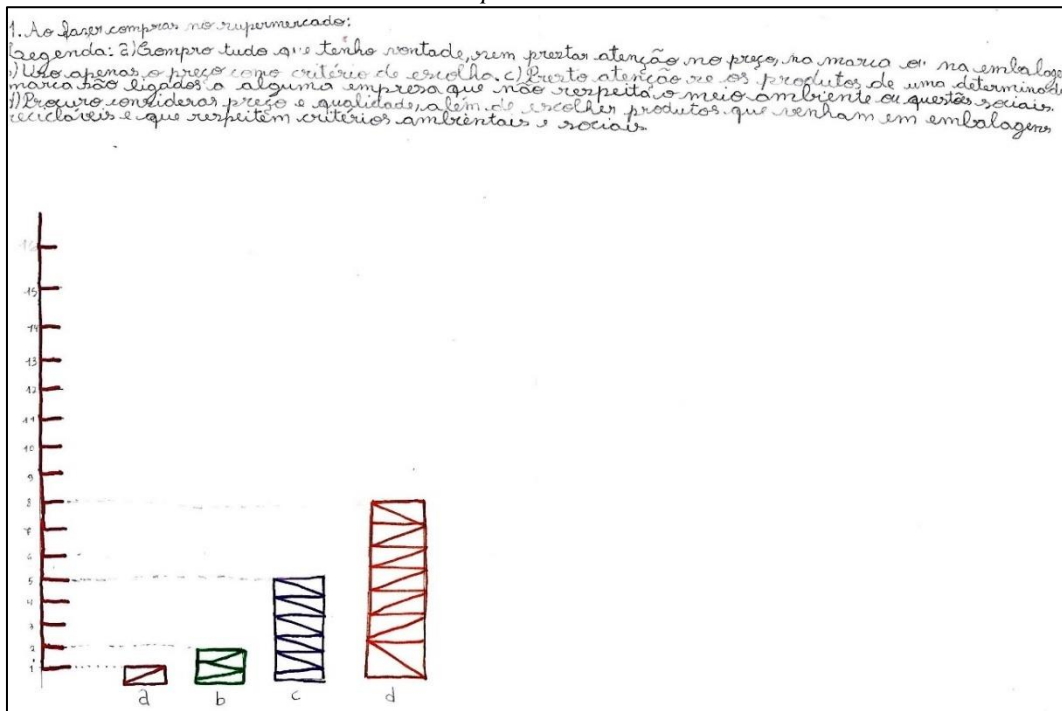 1. Ao fazer compras no supermercado:
Legenda: a) Compro tudo que tenho vontade, sem prestar atenção no preço, na marca ou na embalage
b) Uso apenas o preço como critério de escolha. c) Presto atenção se os produtos de uma determinada
marca são ligados a alguma empresa que não respeita o meio ambiente ou questões sociais.
d) Procuro considerar preço e qualidade, além de escolher produtos que venham em embalagens
recicláveis e que respeitem critérios ambientais e sociais
16
15
14
13
12
11
10
9
8
7
6
5
4
3
2
1
a b c d